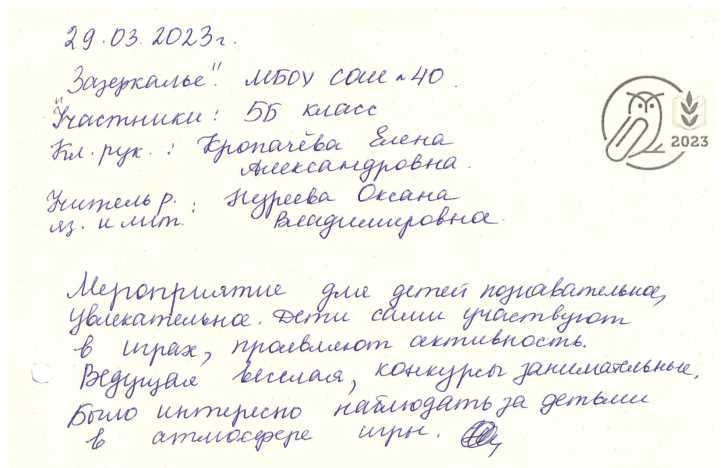 29.03.2023г.
Зазеркалье". МБОУ СОШ №40.
"Участники: 5Б класс
Кл. рук.: Кропачёва Елена
Александровна.
Учитель р. яз. и лит.: Нуреева Оксана
Владимировна.
2023
Мероприятие для детей познавательное,
увлекательное. Дети сами участвуют
в играх, проявляют активность.
Ведущая веселая, конкурсы занимательные.
Было интересно наблюдать за детьми
в атмосфере игры.